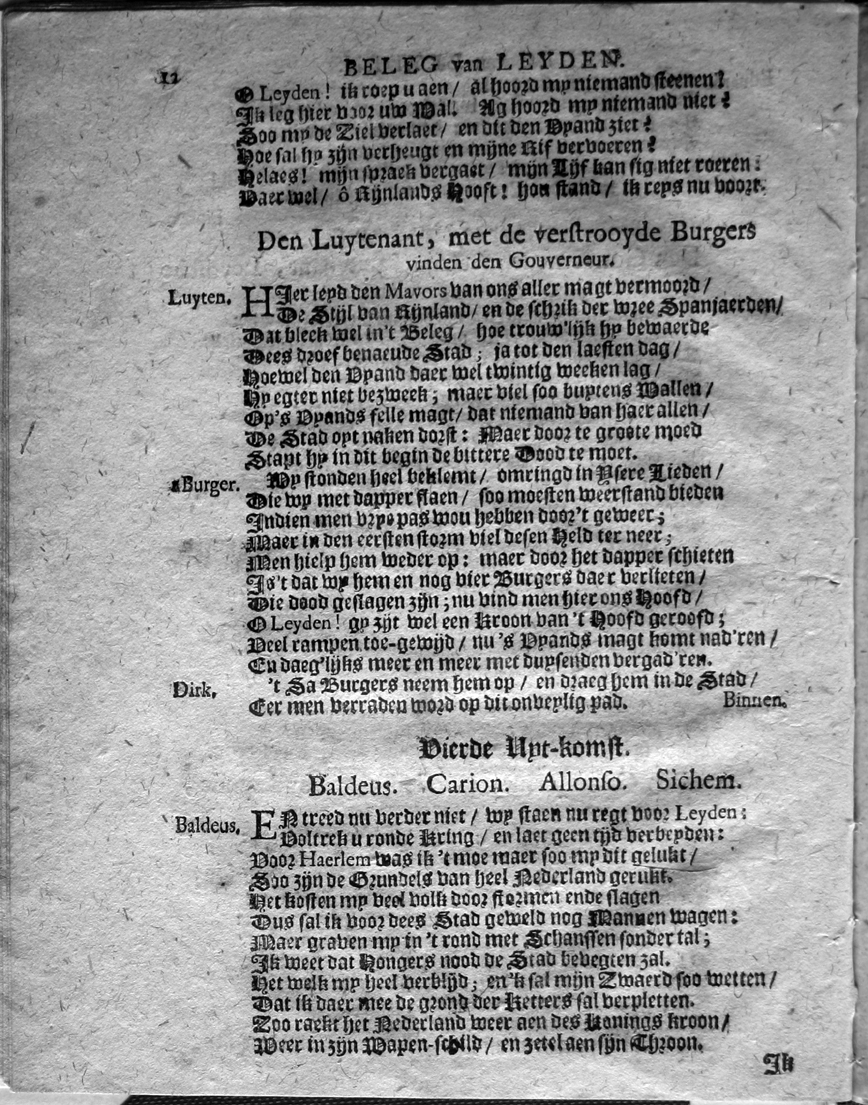 12 BELEG van LEYDEN.
O Leyden! ik roep u aen / al hoord my niemand steenen?
Ik leg hier voor uw Wal. Ag hoord my niemand niet?
Soo my de Ziel verlaet / en dit den Vyand ziet?
Hoe sal hy zijn verheugt en mijne Rif vervoeren?
Helaes! mijn spraek vergaet / mijn Lijf kan sig niet roeren:
Vaer wel / ô Rijnlands Hooft! hou stand / ik reys nu voort.
Den Luytenant, met de verstrooyde Burgers
vinden den Gouverneur.
Luyten. HIer leyd den Mavors van ons aller magt vermoord /
De Stijl van Rijnland / en de schrik der wree Spanjaerden /
Dat bleek wel in't Beleg / hoe trouw'lijk hy bewaerde
Dees droef benaeude Stad; ja tot den laesten dag /
Hoewel den Vyand daer wel twintig weeken lag /
Hy egter niet bezweek; maer viel soo buytens Wallen /
Op's Vyands felle magt / dat niemand van haer allen /
De Stad oyt naken dorst: Maer door te groote moed
Stapt hy in dit begin de bittere Dood te moet.
2Burger. Wy stonden heel beklemt / omringd in Ysere Lieden /
Die wy met dapper slaen / soo moesten weerstand bieden
Indien men vrye pas wou hebben door't geweer;
Maer in den eersten storm viel desen Held ter neer;
Men hielp hem weder op: maer door het dapper schieten
Is't dat wy hem en nog vier Burgers daer verlieten /
Die dood geslagen zijn; nu vind men hier ons Hoofd /
O Leyden! gy zijt wel een Kroon van 't Hoofd geroofd;
Veel rampen toe-gewijd / nu 's Vyands magt komt nad'ren /
En daeg'lijks meer en meer met duysenden vergad'ren.
Dirk. 't Sa Burgers neem hem op / en draeg hem in de Stad /
Eer men verraden word op dit onveylig pad. Binnen.
Vierde Uyt-komst.
Baldeus. Carion. Allonso. Sichem.
Baldeus. EN treed nu verder niet / wy staen nu regt voor Leyden:
Voltrek u ronde Kring / en laet geen tijd verbeyden:
Voor Haerlem was ik 't moe maer soo my dit gelukt /
Soo zijn de Grundels van heel Nederland gerukt.
Het kosten my veel volk door stormen ende slagen
Dus sal ik voor dees Stad geweld nog Mannen wagen:
Maer graven my in 't rond met Schanssen sonder tal;
Ik weet dat Hongers nood de Stad bevegten zal.
Het welk my heel verblijd; en 'k sal mijn Zwaerd soo wetten /
Dat ik daer mee de grond der Ketters sal verpletten.
Zoo raekt het Nederland weer aen des Konings kroon /
Weer in zijn Wapen-schild / en zetel aen sijn Throon.
Ik